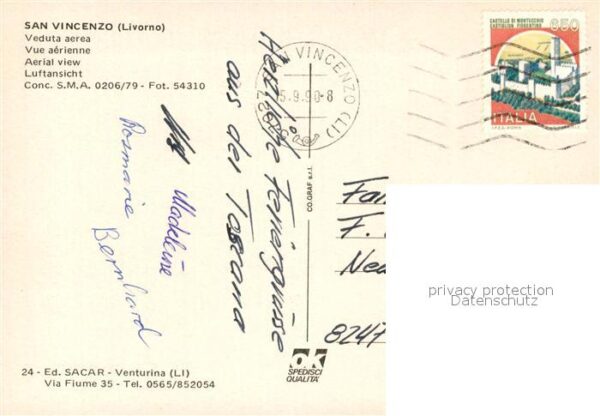 SAN VINCENZO (Livorno)
Veduta aerea
Vue aérienne
Aerial view
Luftansicht
Conc. S.M.A. 0206/79 - Fot. 54310
CASTELLO DI MONTECCHIO
CASTIGLION FIORENTINO
650
ITALIA
VINCENZO (LI)
5.9.90-8
Herzliche Feriengrüsse
aus der Toscana
Madeleine
Rosmarie
Bernhard
CO.GRAF s.r.l.
Fam
F.
Nea
8247
privacy protection
Datenschutz
ok
SPEDISCI
QUALITÀ
24 - Ed. SACAR - Venturina (LI)
Via Fiume 35 - Tel. 0565/852054